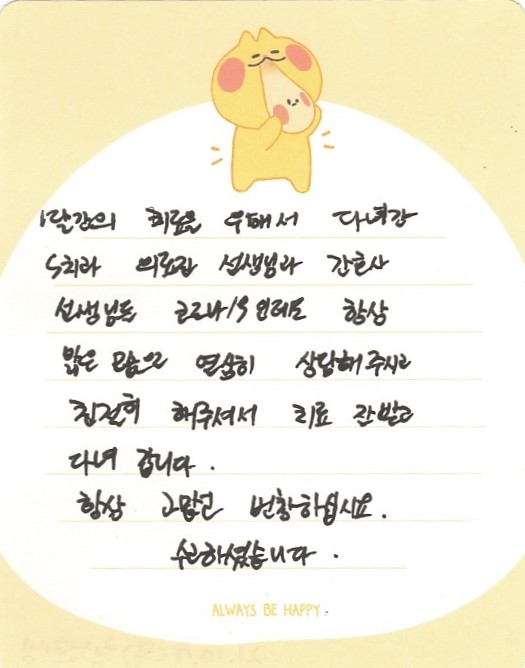 1달간의 치료을 위해서 다녀간
S치과 의료진 선생님과 간호사
선생님들 코로나19 인데도 항상
밝은 모습으로 열심히 상담해 주시고
친절히 해주셔서 치료 잘 받고
다녀 갑니다.
항상 고맙고 번창하십시요.
수고하셨습니다.
ALWAYS BE HAPPY